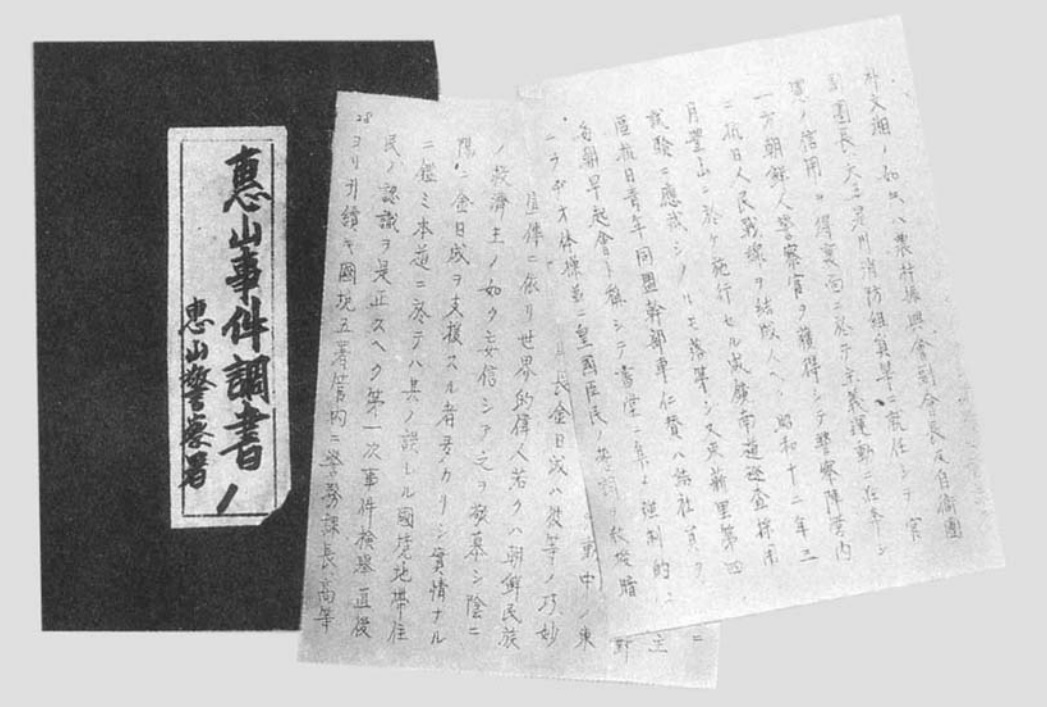 惠山事件調書ノ
惠山警察署
朴文湘ノ如キハ農村振興會副會長及自衛團
副團長、大三署川消防組員等ニ就任シテ官
憲ノ信用ヲ得裏面ニ於テ主義運動ニ
一方朝鮮人警察官ヲ獲得シテ警察陣營内
ニ抗日人民戰線ヲ結成スヘク昭和十二年三
月豐山ニ於テ施行セル咸鏡南道巡査採用
試驗ニ應試シタルモ落第シ又東新里第四
區抗日青年同盟幹部車仁贊ハ結社員ヲ
毎朝早起會ト稱シテ書堂ニ集メ強制的ニ
ニラヂオ体操並ニ皇國臣民ノ誓詞
長金日成ハ彼等ノ巧妙
宣傳ニ依リ世界的偉人若クハ朝鮮民族
ノ救濟主ノ如ク妄信シ之ヲ敬慕シ陰ニ
陽ニ金日成ヲ支援スル者多カリシ實情ナル
ニ鑑ミ本道ニ於テハ其ノ誤レル國境地帶住
民ノ認識ヲ是正スヘク第一次事件檢擧直後
ヨリ引續キ國境五署管内ニ警務課長、高等
28